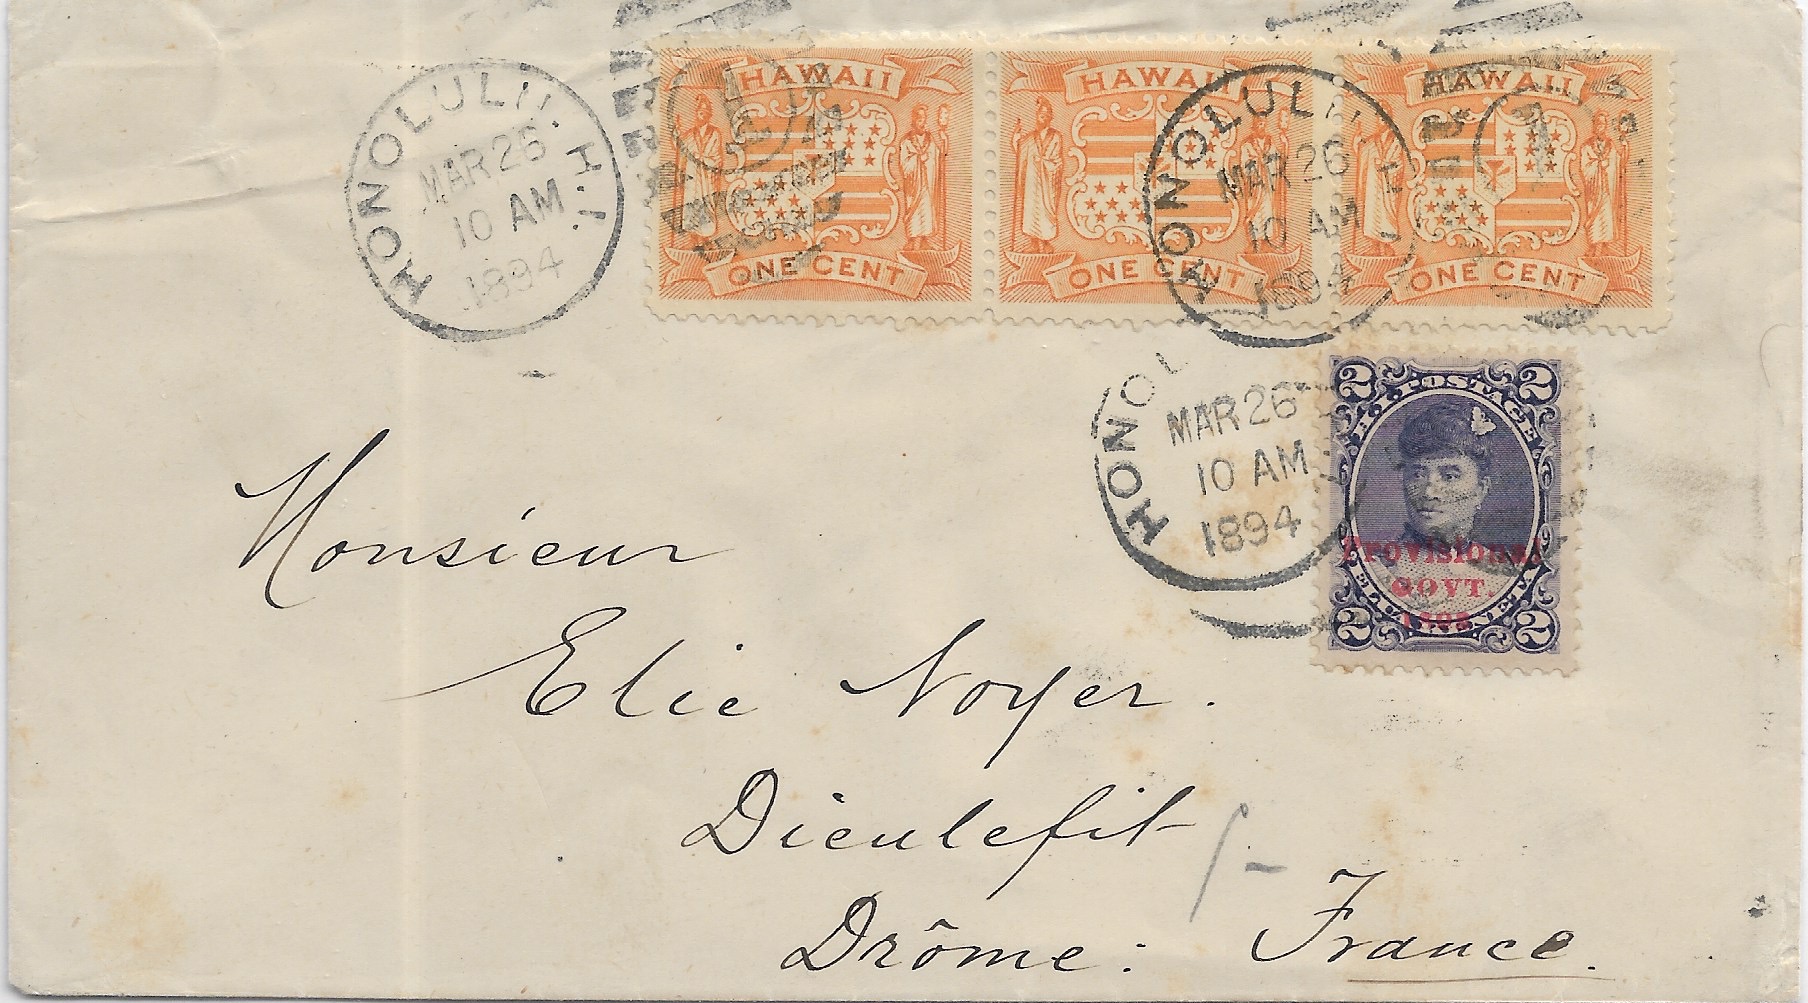 HONOLULU. H.I.
MAR 26
10 AM
1894
HAWAII
ONE CENT
HAWAII
ONE CENT
HAWAII
ONE CENT
HONOLULU
MAR 26
10 AM
1894
HONOL
MAR 26
10 AM
1894
2 POSTAGE 2
Provisional
GOVT.
1893
2 2
Monsieur
Elie Noyer.
Dieulefit
Drôme: France.